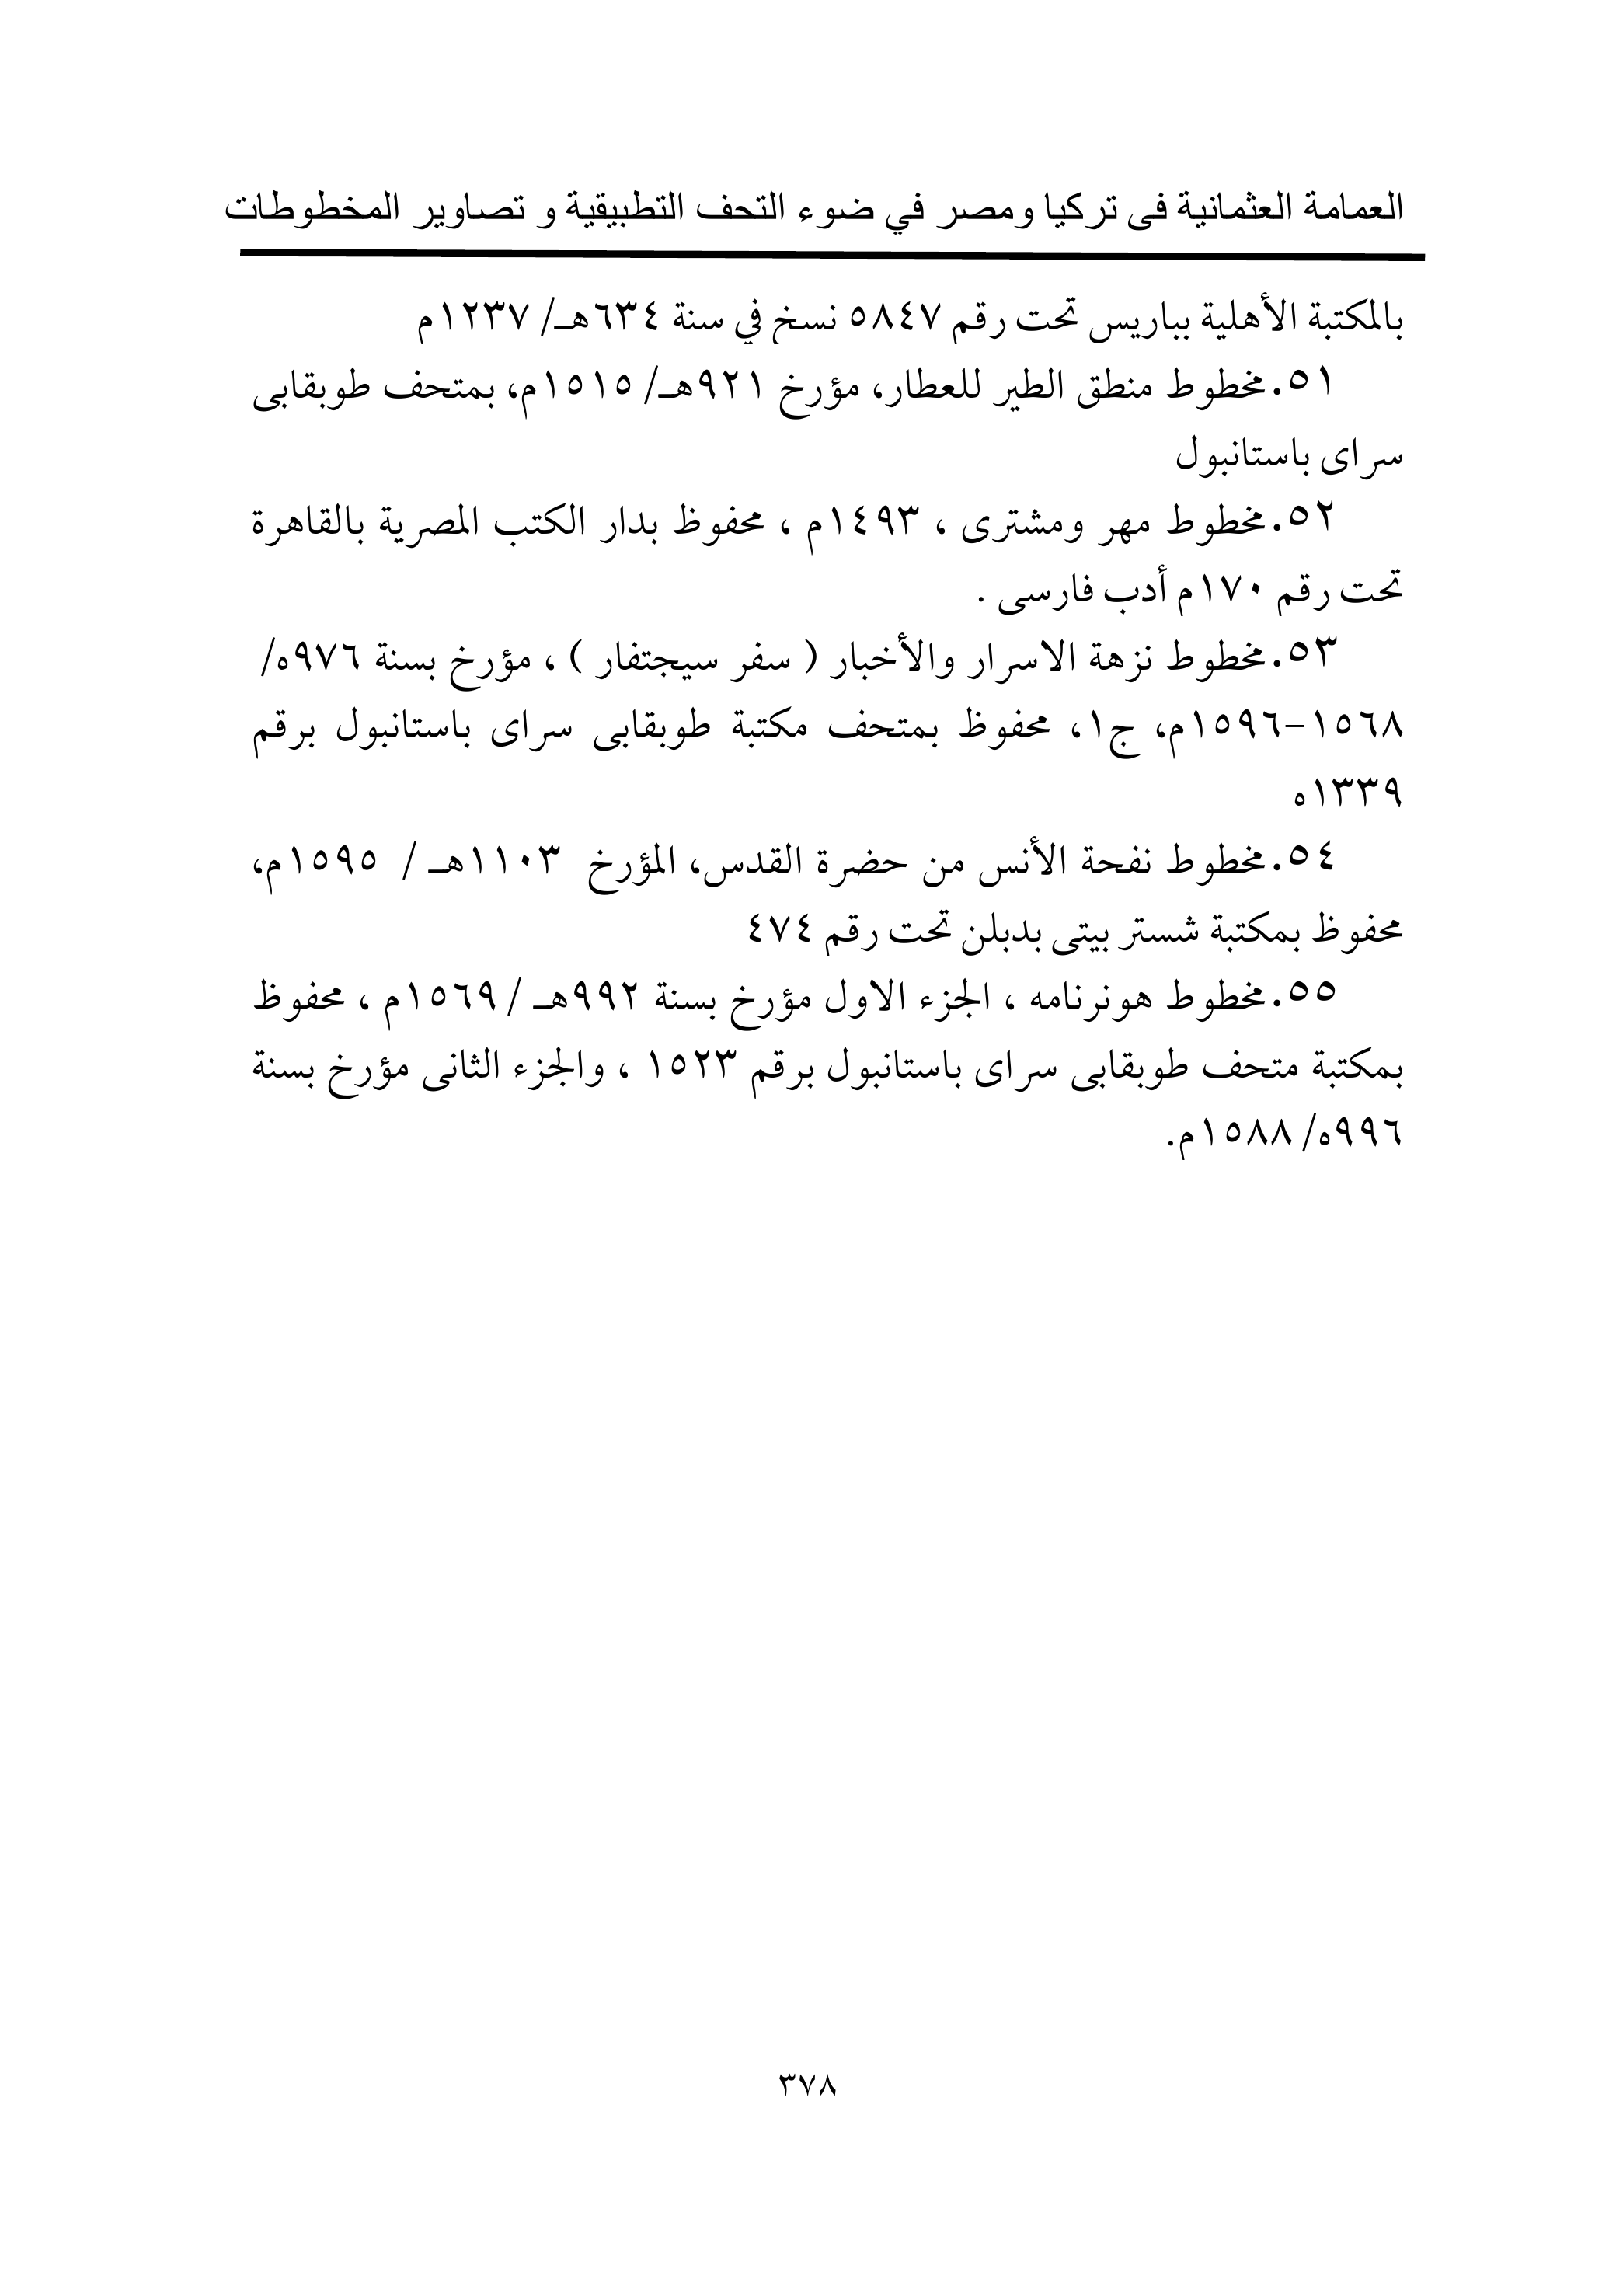 العمامة العثمانية فى تركيا ومصر في ضوء التحف التطبيقية و تصاوير المخطوطات
بالمكتبة الأهلية بباريس تحت رقم ٥٨٤٧ نسخ في سنة ٦٣٤هـ/ ١٢٣٧م
٥١.مخطوط منطق الطير للعطار، مؤرخ ٩٢١هـ/ ١٥١٥م، بمتحف طوبقابى
سراى باستانبول
٥٢.مخطوط مهر ومشترى ، ١٤٩٣م ، محفوظ بدار الكتب المصرية بالقاهرة
تحت رقم ١٧٠م أدب فارسى .
٥٣.مخطوط نزهة الاسرار والأخبار ( سفر سيجتفار ) ، مؤرخ بسنة ٩٧٦ه/
١٥٦٨-١٥٩٦م، ج١، محفوظ بمتحف مكتبة طوبقابى سراى باستانبول برقم
١٣٣٩ه
٥٤.مخطوط نفحة الأنس من حضرة القدس، المؤرخ ١١٠٣هـ / ١٥٩٥م،
محفوظ بمكتبة شستر بيتى بدبلن تحت رقم ٤٧٤
٥٥.مخطوط هونرنامه ، الجزء الاول مؤرخ بسنة ٩٩٢هـ / ١٥٦٩م ، محفوظ
بمكتبة متحف طوبقابى سراى باستانبول برقم ١٥٢٣ ، والجزء الثانى مؤرخ بسنة
٩٩٦ه/ ١٥٨٨م.
٣٧٨